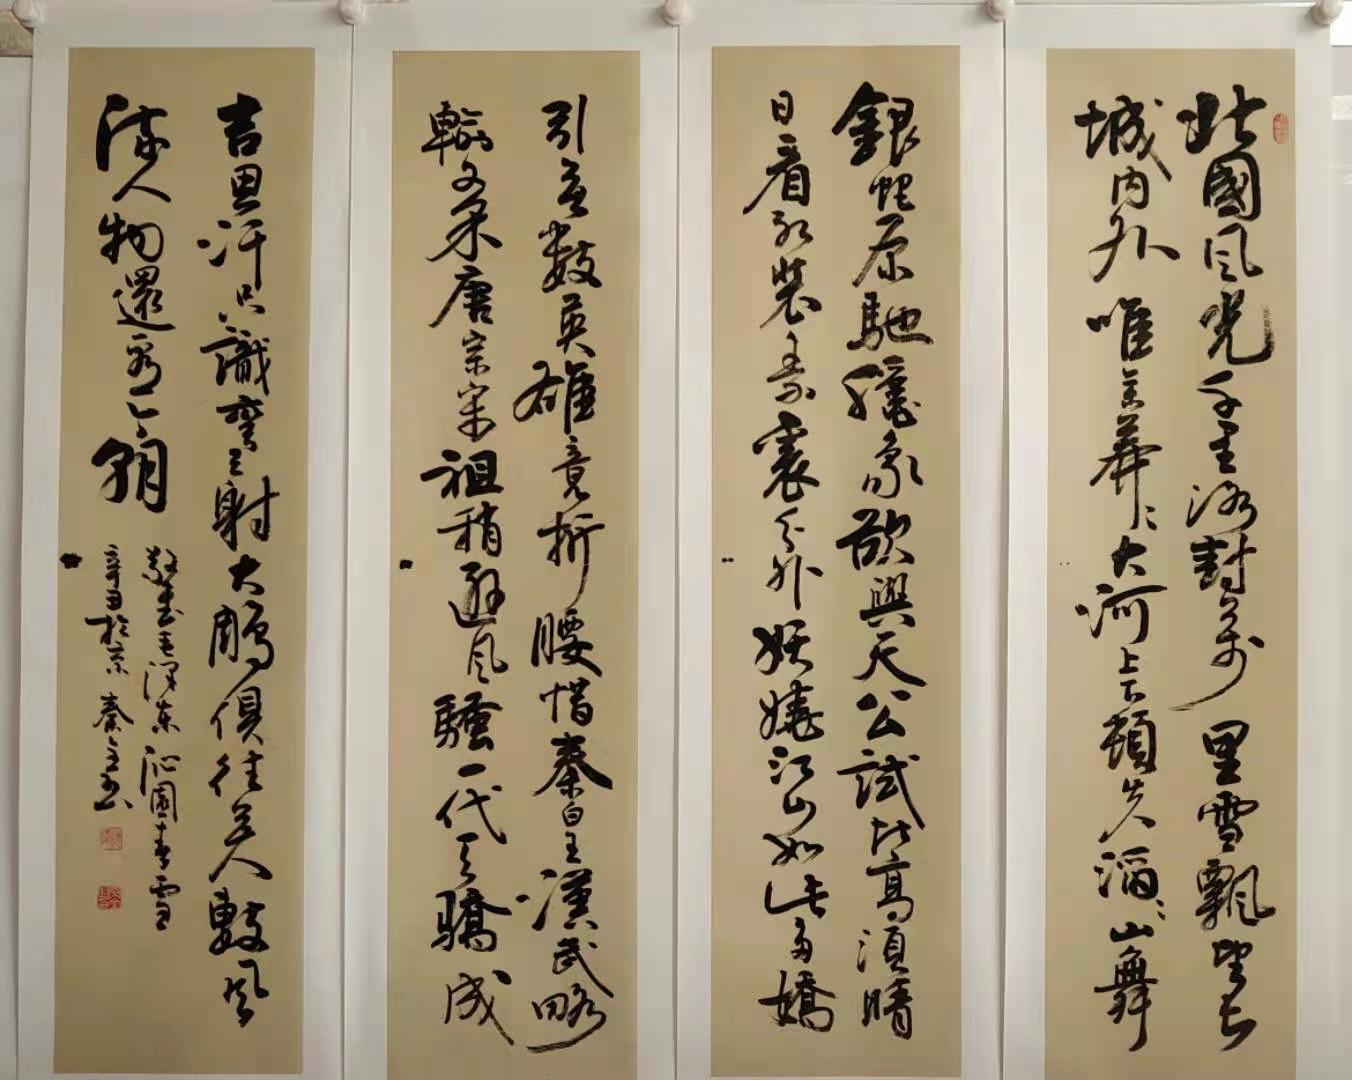 北國風光千里冰封萬里雪飄望長
城内外唯余莽々大河上下頓失滔々山舞
銀蛇原馳蠟象欲與天公試比高須晴
日看紅裝素裹分外妖嬈江山如此多嬌
引無數英雄竟折腰惜秦皇漢武略
輸文采唐宗宋祖稍遜風騷一代天驕成
吉思汗只識彎弓射大鵰俱往矣數風
流人物還看今朝
敬書毛澤東沁園春雪
辛丑於京秦